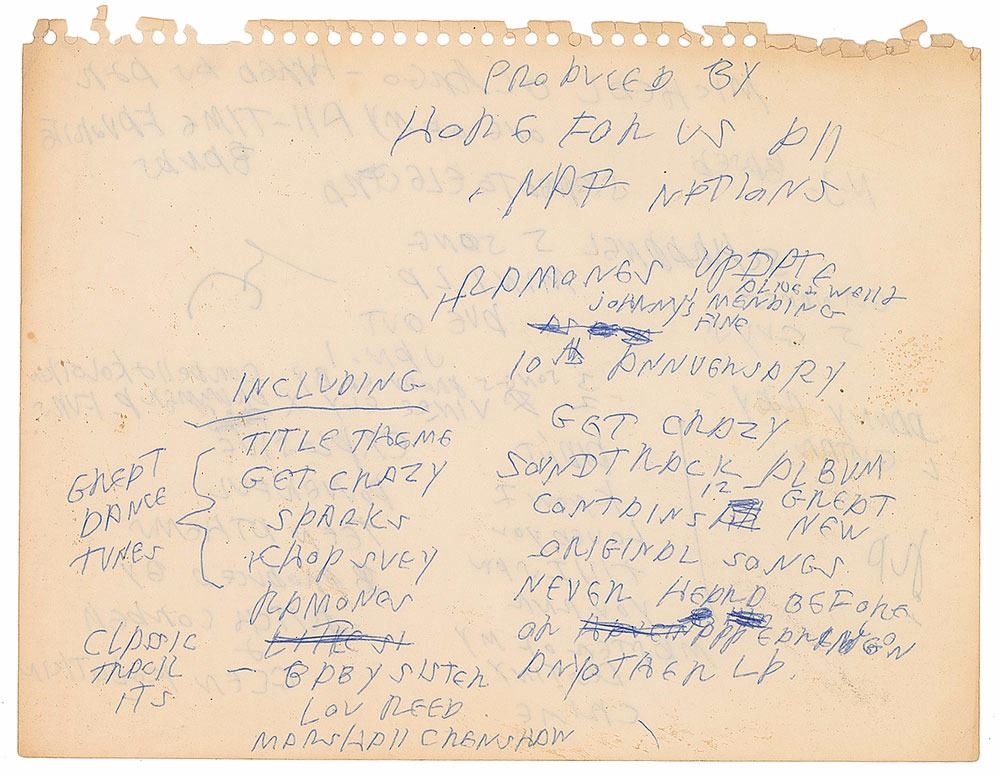 PRODUCED BY
HOPE FOR US ALL
NATIONS
RAMONES UPDATE
ALIVE & WELL
JOHNNY'S MENDING
FINE
10th ANNVERSARY
GET CRAZY
SOUNDTRACK ALBUM
CONTAINS 12 GREAT
NEW
ORIGINAL SONGS
NEVER HEARD BEFORE
OR ON
ANYOTHER LP.
INCLUDING
TITLE THEME
GET CRAZY
SPARKS
CHOP SUEY
RAMONES
GREAT
DANCE
TUNES
CLASSIC
TRACK
ITS
— BABY SISTER
LOU REED
MARSHALL CRENSHAW